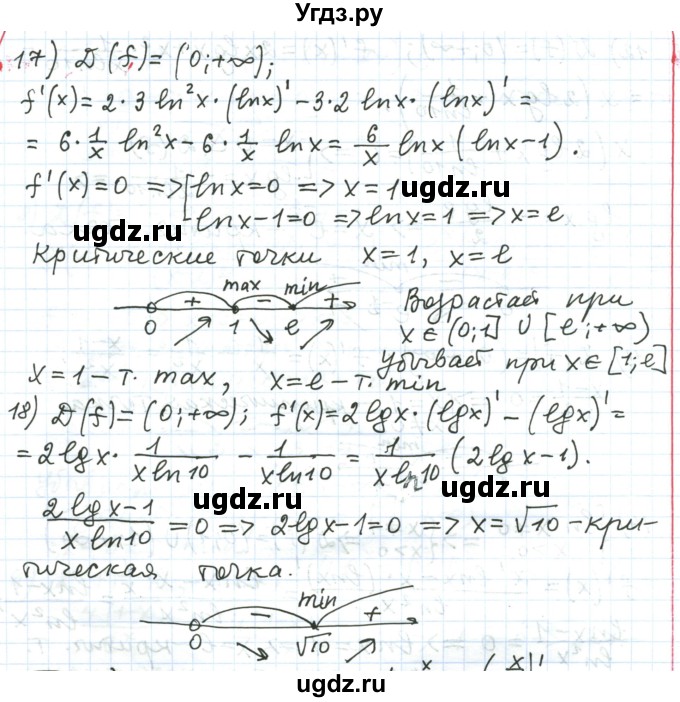 Угдз.ру
17) D(f) = (0; +∞);
f'(x) = 2·3 ln²x · (lnx)' - 3·2 lnx · (lnx)' =
= 6 · 1/x ln²x - 6 · 1/x lnx = 6/x lnx (lnx-1).
f'(x) = 0 => [lnx=0 => x=1
lnx-1=0 => lnx=1 => x=e
ugdz.ru
ugdz.ru
Критические точки x=1, x=e
max min
+ - +
0 1 e
Возрастает при
x∈(0;1] ∪ [e; +∞)
Убывает при x∈[1;e]
x=1 - т. max, x=e - т. min
ugdz.ru
18) D(f) = (0; +∞); f'(x) = 2lgx · (lgx)' - (lgx)' =
= 2lgx · 1/(x ln10) - 1/(x ln10) = 1/(x ln10) (2lgx-1).
ugdz.ru
(2lgx-1)/(x ln10) = 0 => 2lgx-1=0 => x=√10 - кри-
тическая точка.
min
- +
0 √10
ugdz.ru
ugdz.ru